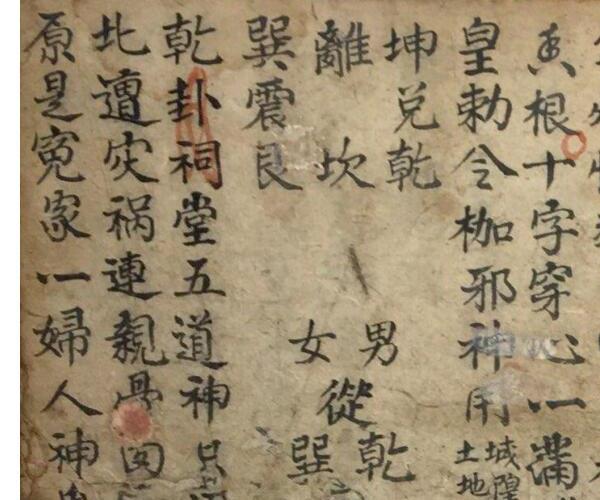 根十字穿心一滿
皇勅令枷邪神用
城隍
土地
坤兌乾
離 坎
巽震艮
男 乾
從
女 巽
乾卦祠堂五道神只
北遭灾祸連親骨
原是冤家一婦人神